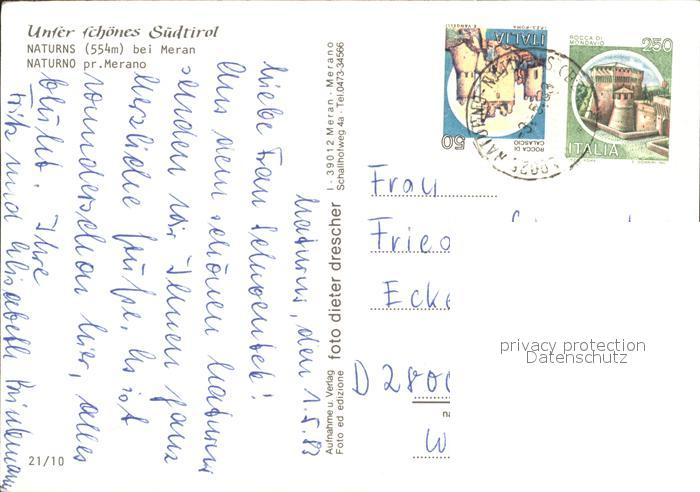 Unser schönes Südtirol
NATURNS (554m) bei Meran
NATURNO pr.Merano
Naturns, den 1.5.83
Liebe Frau
Aus dem schönen Naturns
senden wir Ihnen ganz
herzliche Grüße. Es ist
wunderschön hier, alles
blüht. Ihre
Fritz und Elisabeth
21/10
Aufnahme u. Verlag
Foto ed edizione
foto dieter drescher
I - 39012 Meran - Merano
Schallhofweg 4a · Tel. 0473-34566
50
ROCCA DI
CALASCIO
ITALIA
ROCCA DI
MONDAVIO
250
ITALIA
Frau
Fried
Ecke
D 2800
W
privacy protection
Datenschutz